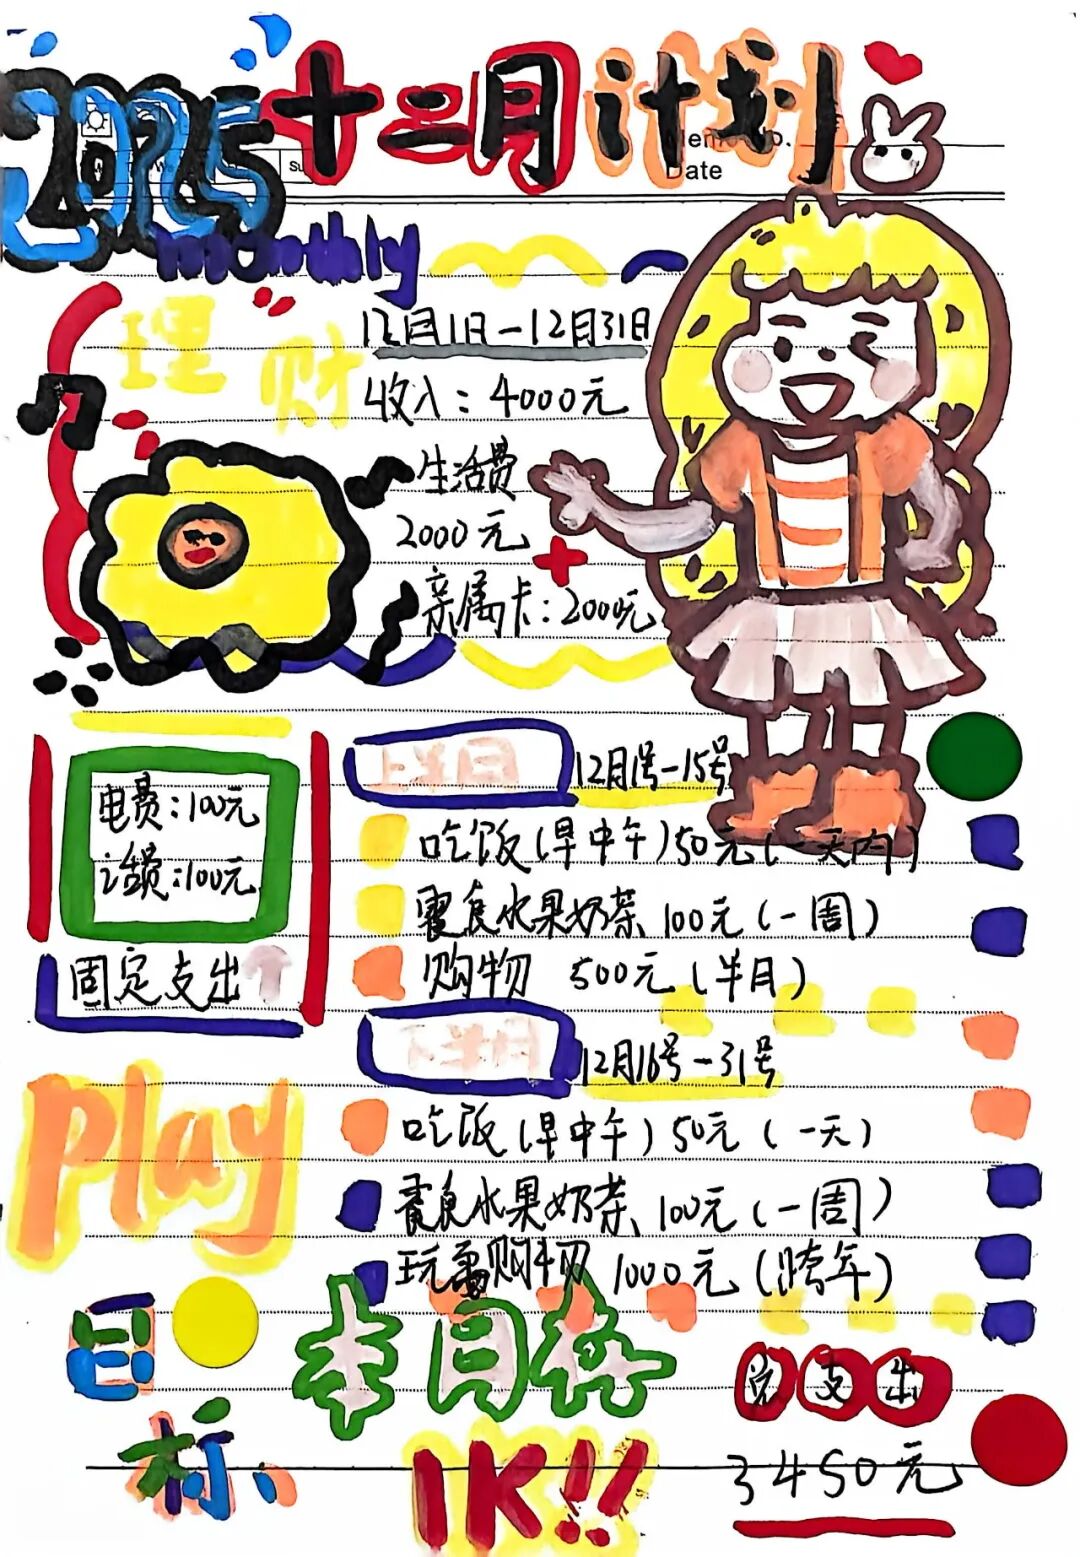 2025 十二月计划
Memo No.
Date
monthly
理财
12月1日-12月31日
收入：4000元
生活费
2000元
+
亲属卡：2000元
电费：100元
话费：100元
固定支出↑
上半月 12月1号-15号
吃饭(早中午)50元(一天内)
零食水果奶茶 100元(一周)
购物 500元(半月)
下半月 12月16号-31号
吃饭(早中午)50元(一天)
零食水果奶茶 100元(一周)
玩乐购物 1000元(跨年)
Play
目标
本月存
1K!!
总支出
3450元